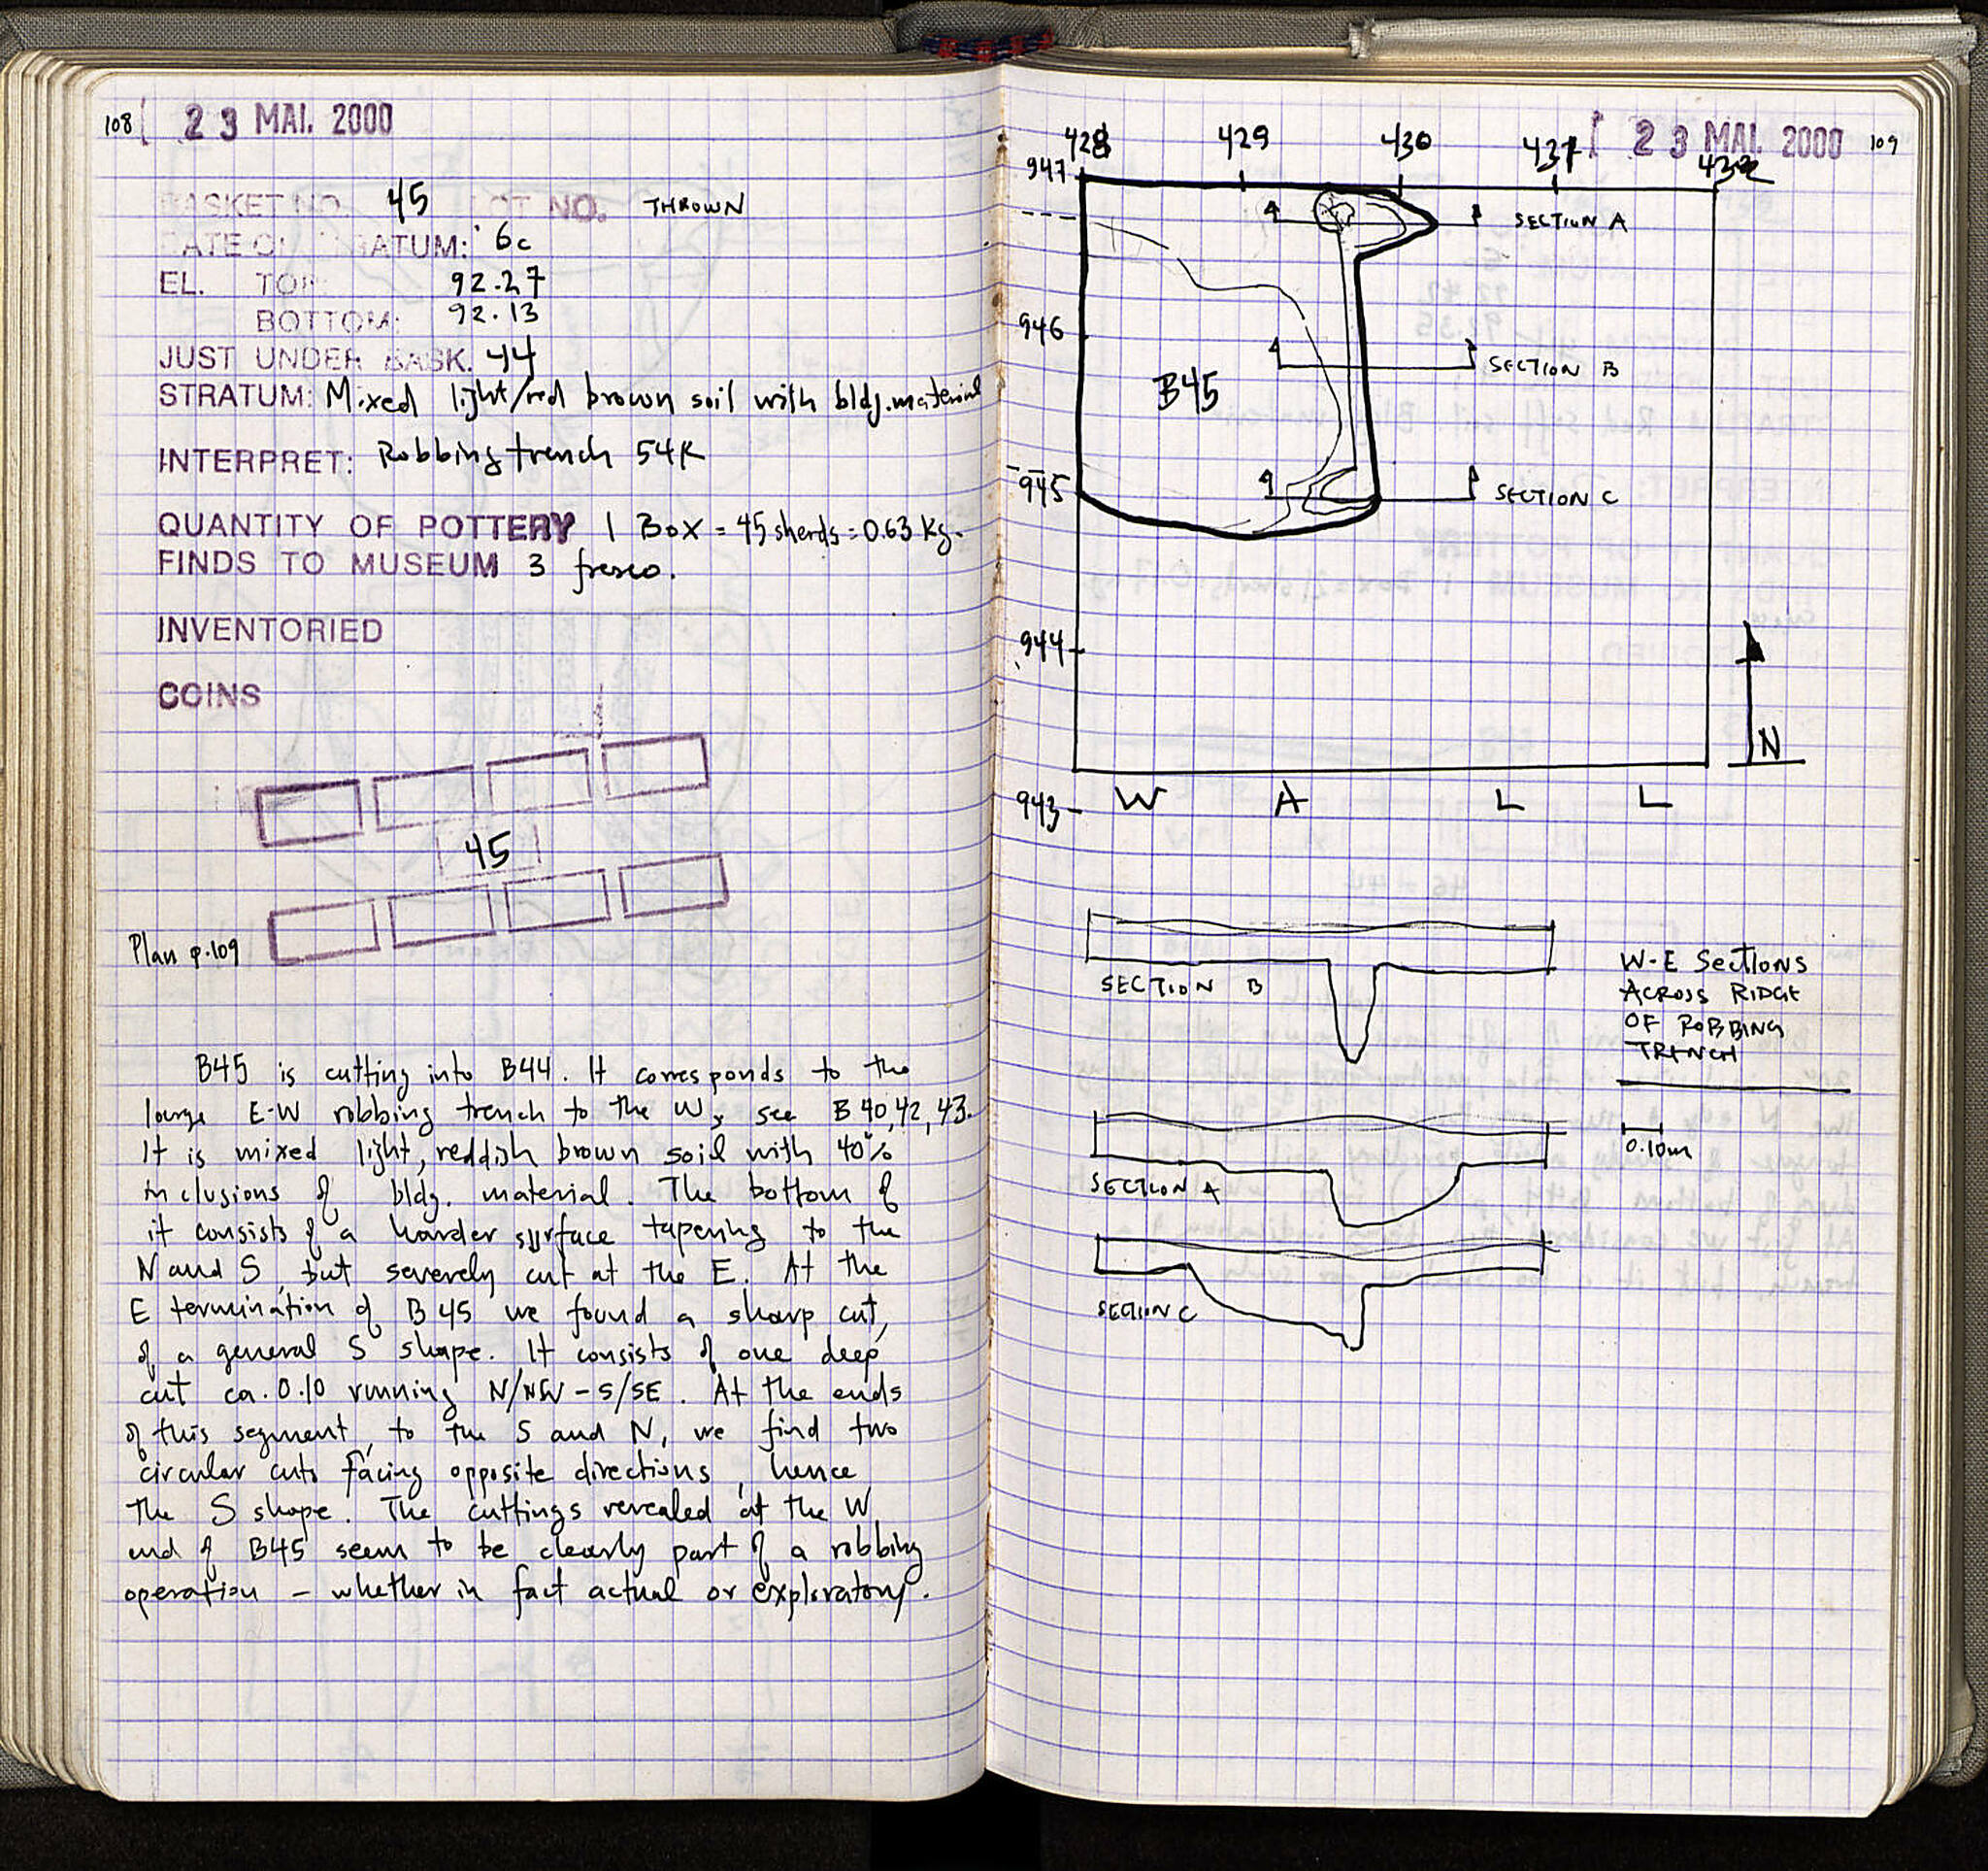 108 23 MAI. 2000
BASKET NO. 45 LOT NO. THROWN
DATE OF STRATUM: 6c
EL. TOP: 92.27
BOTTOM: 92.13
JUST UNDER BASK. 44
STRATUM: Mixed light/red brown soil with bldg. material
INTERPRET: Robbing trench 54K
QUANTITY OF POTTERY 1 Box = 45 sherds = 0.63 kg.
FINDS TO MUSEUM 3 fresco.
INVENTORIED
COINS
45
Plan p.109
B45 is cutting into B44. It corresponds to the
large E-W robbing trench to the W, see B 40, 42, 43.
It is mixed light, reddish brown soil with 40%
inclusions of bldg. material. The bottom of
it consists of a harder surface tapering to the
N and S, but severely cut at the E. At the
E termination of B45 we found a sharp cut,
of a general S shape. It consists of one deep
cut ca. 0.10 running N/NW - S/SE. At the ends
of this segment, to the S and N, we find two
circular cuts facing opposite directions, hence
the S shape. The cuttings revealed at the W
end of B45 seem to be clearly part of a robbing
operation - whether in fact actual or exploratory.
23 MAI. 2000 109
428 429 430 431 432
947
SECTION A
946
SECTION B
B45
945
SECTION C
944
N
943
W A L L
SECTION B
W-E SECTIONS
ACROSS RIDGE
OF ROBBING
TRENCH
0.10m
SECTION A
SECTION C